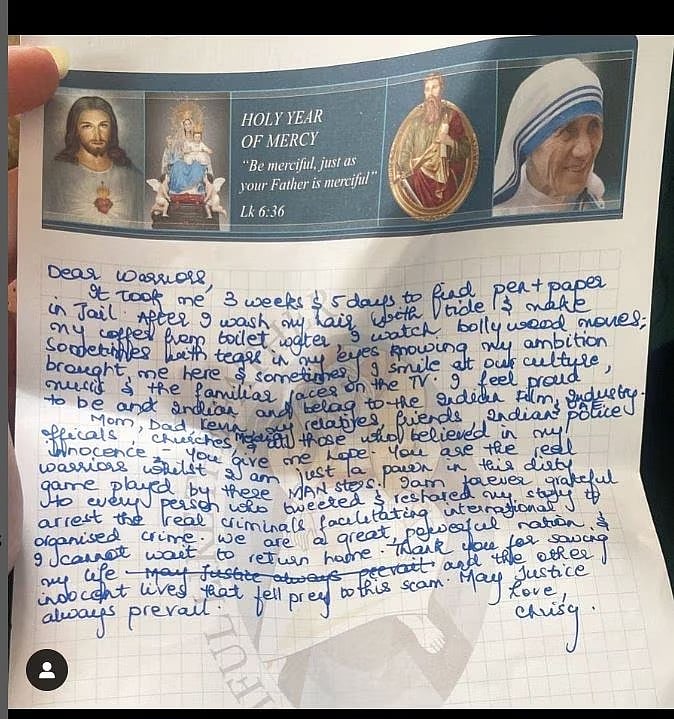 HOLY YEAR
OF MERCY
"Be merciful, just as
your Father is merciful"
Lk 6:36
Dear Warriors,
It took me 3 weeks & 5 days to find pen + paper
in Jail. After I wash my hair with tide & make
my coffee from toilet water, I watch bollywood movies;
sometimes with tears in my eyes knowing my ambition
brought me here & sometimes I smile at our culture,
music & the familiar faces on the TV. I feel proud
to be and Indian and belong to the Indian Film Industry.
Mom, Dad, Kevin my relatives friends, Indian & UAE police
officals, churches, & all those who believed in my
innocence & you give me hope. You are the real
warriors whilst I am just a pawn in this dirty
game played by these MANsters. I am forever grateful
to every person who tweeted & reshared my story to
arrest the real criminals facilitating international
organised crime. We are a great, powerful nation &
I cannot wait to return home. Thank you for saving
my life May Justice always prevail. and the other
innocent lives that fell prey to this scam. May Justice
always prevail.
Love,
Chrisy.